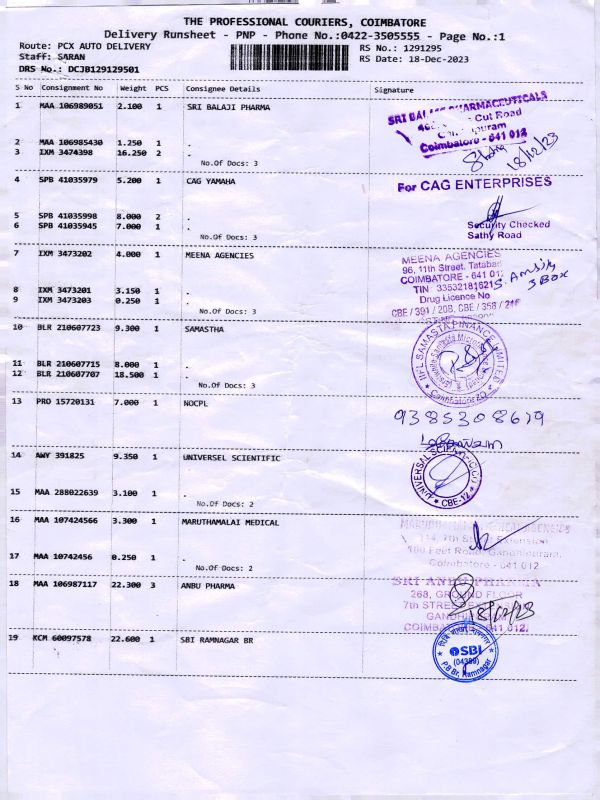 THE PROFESSIONAL COURIERS, COIMBATORE
Delivery Runsheet - PNP - Phone No.:0422-3505555 - Page No.:1
Route: PCX AUTO DELIVERY RS No.: 1291295
Staff: SARAN RS Date: 18-Dec-2023
DRS No.: DCJB129129501
S No Consignment No Weight PCS Consignee Details Signature
1 MAA 106989051 2.100 1 SRI BALAJI PHARMA
SRI BALAJI PHARMACEUTICALS
Cut Road
Coimbatore - 641 012
18/12/23
2 MAA 106985430 1.250 1 .
3 IXM 3474398 16.250 2 .
No.Of Docs: 3
4 SPB 41035979 5.200 1 CAG YAMAHA
For CAG ENTERPRISES
5 SPB 41035998 8.000 2 .
6 SPB 41035945 7.000 1 .
No.Of Docs: 3
Security Checked
Sathy Road
7 IXM 3473202 4.000 1 MEENA AGENCIES
MEENA AGENCIES
96, 11th Street, Tatabad
COIMBATORE - 641 012
TIN
Drug Licence No
CBE / 391 / 20B, CBE / 358 / 21B
3 BOX
8 IXM 3473201 3.150 1 .
9 IXM 3473203 0.250 1 .
No.Of Docs: 3
10 BLR 210607723 9.300 1 SAMASTHA
IIFL SAMASTA FINANCE LIMITED
11 BLR 210607715 8.000 1 .
12 BLR 210607707 18.500 1 .
No.Of Docs: 3
13 PRO 15720131 7.000 1 NOCPL
9385308619
14 AWY 391825 9.350 1 UNIVERSEL SCIENTIFIC
UNIVERSAL SCIENTIFIC
CBE-12
15 MAA 288022639 3.100 1 .
No.Of Docs: 2
16 MAA 107424566 3.300 1 MARUTHAMALAI MEDICAL
114, 7th Street Extension
100 Feet Road, Gandhipuram,
Coimbatore - 641 012
17 MAA 10742456 0.250 1 .
No.Of Docs: 2
18 MAA 106987117 22.300 3 ANBU PHARMA
SRI ANBU PHARMA
268, GROUND FLOOR
7th STREET
18/12/23
COIMBATORE - 641 012.
19 KCM 60097578 22.600 1 SBI RAMNAGAR BR
SBI
(04389)
P B Br. Ramnagar